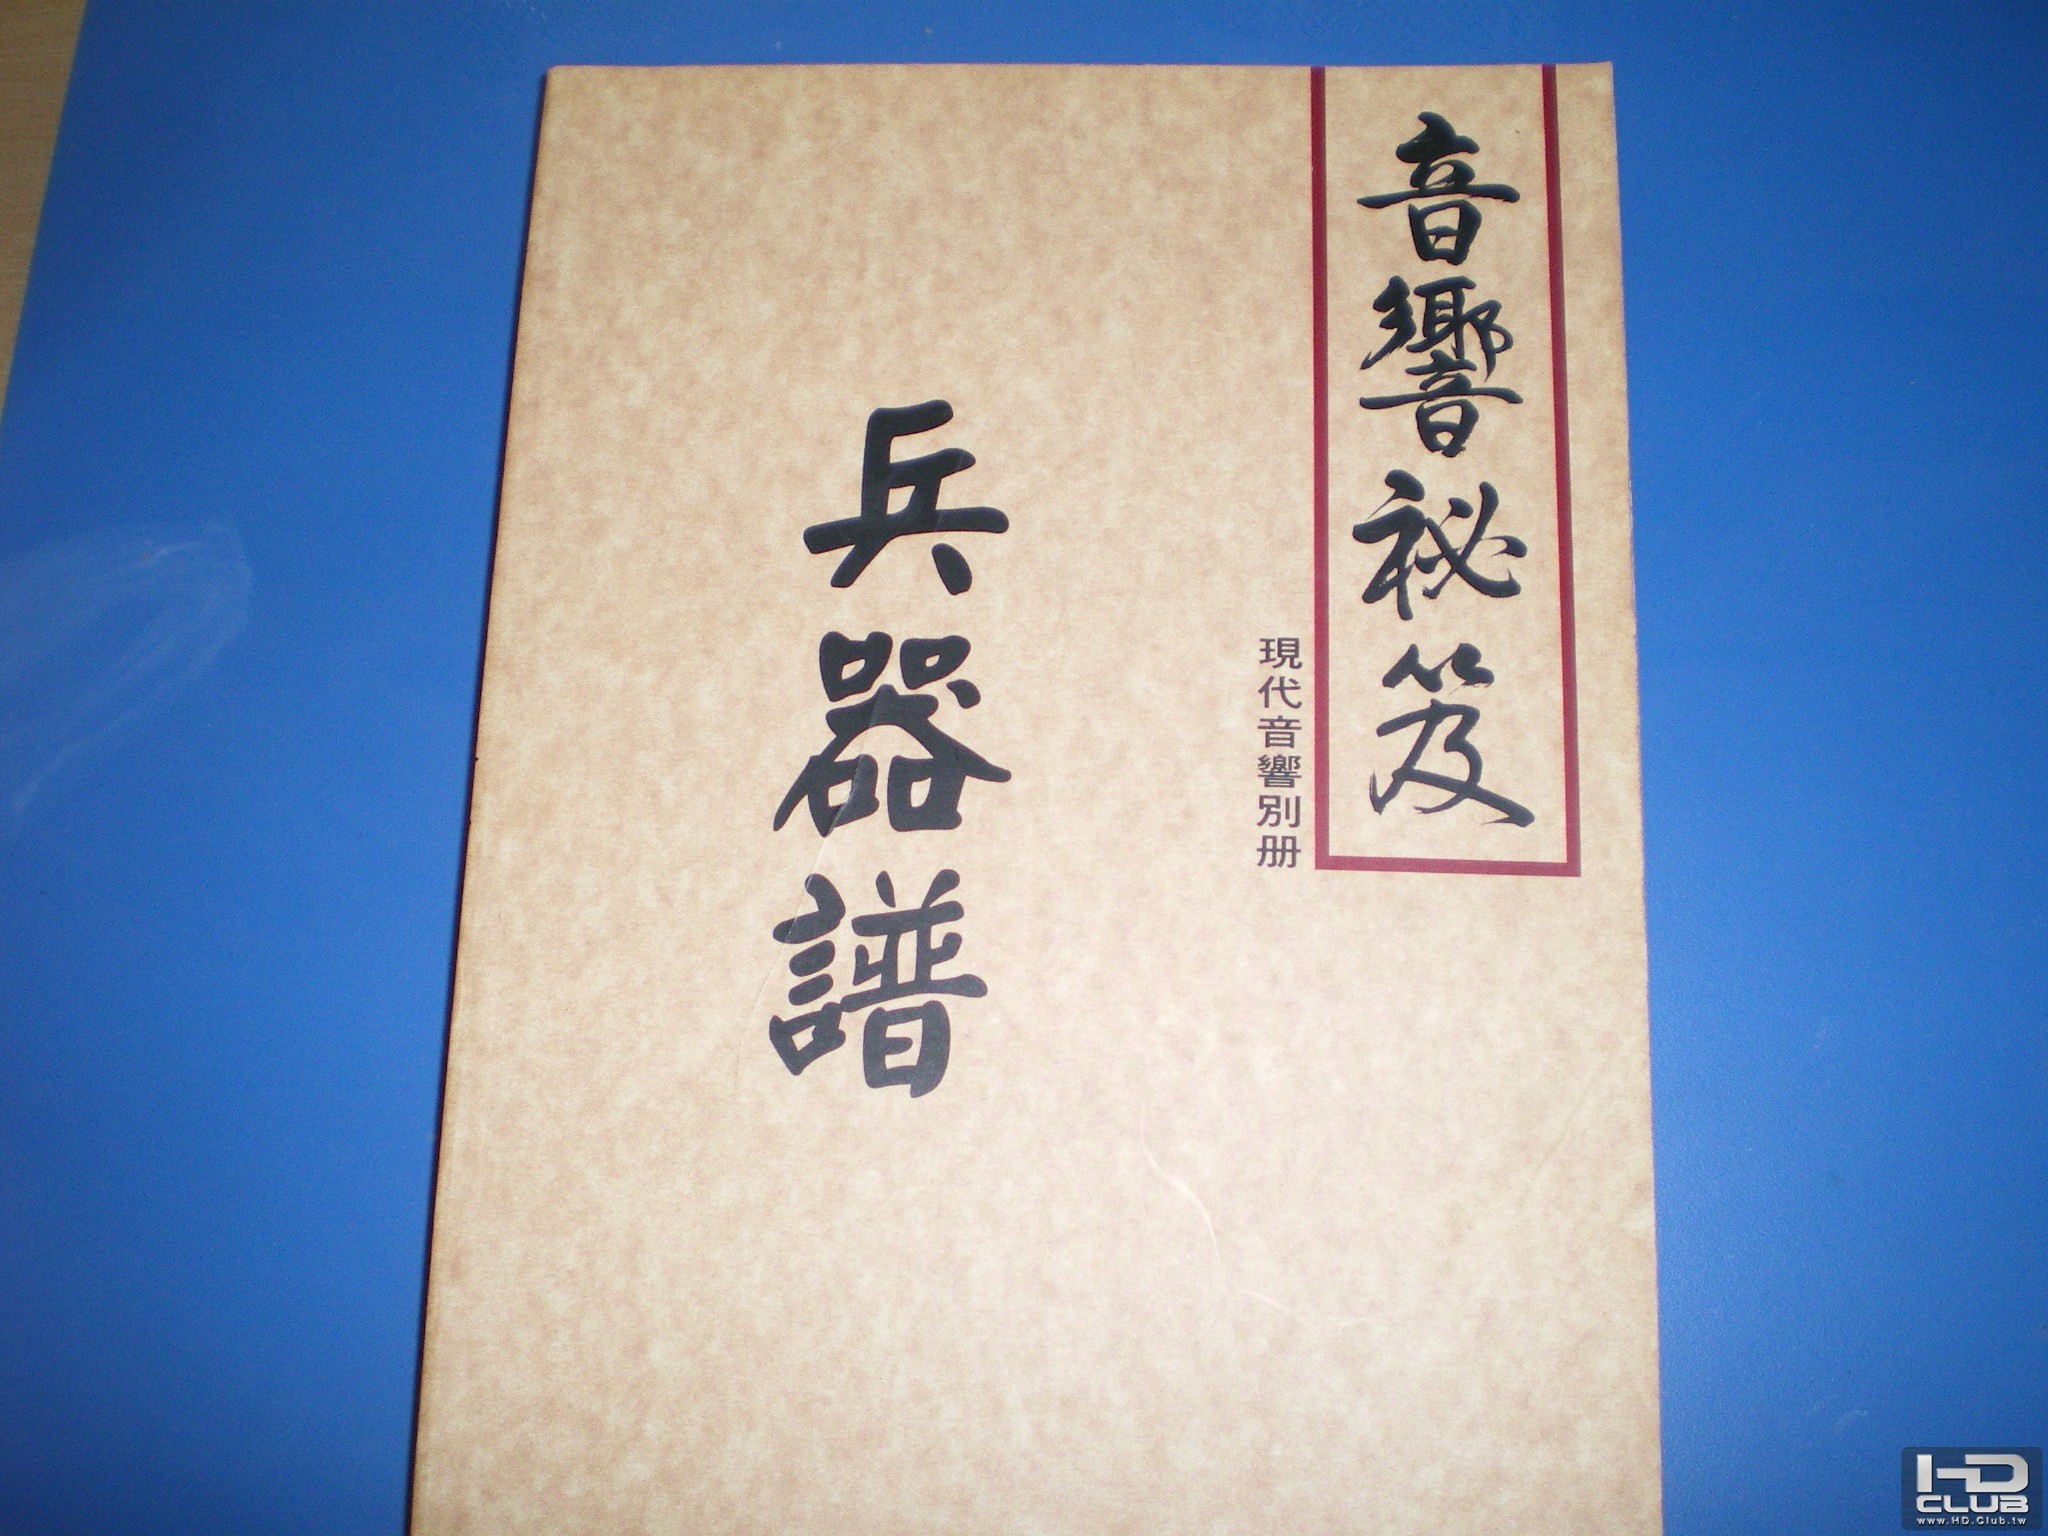 音響祕笈
現代音響別冊
兵器譜
HD
CLUB
www.HD.Club.tw